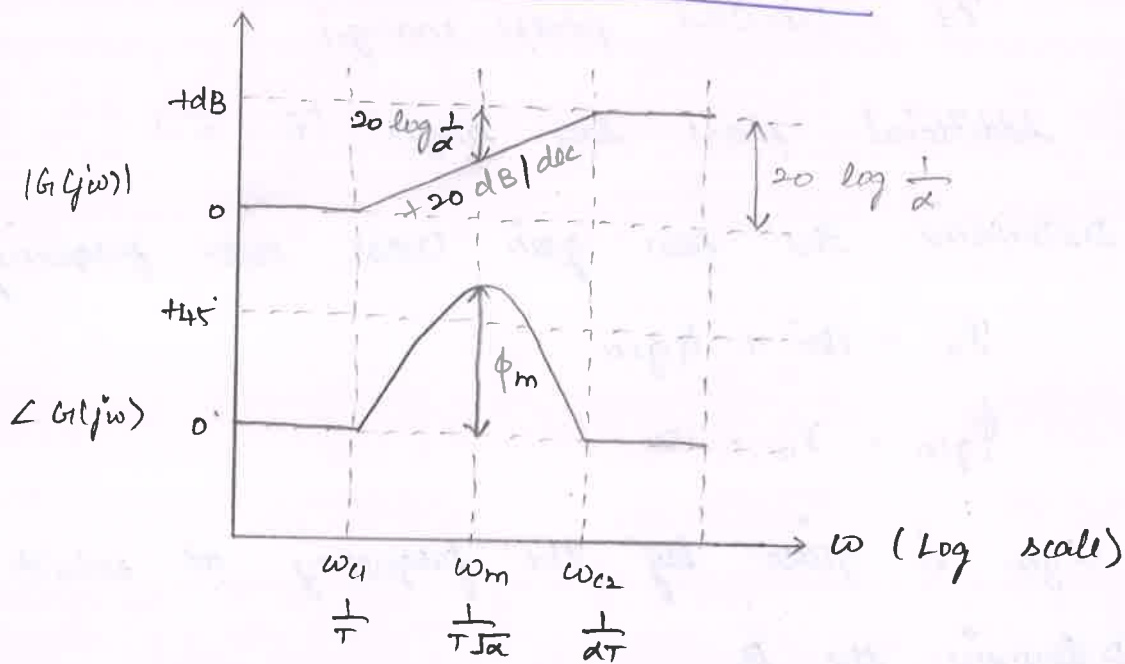 +dB
20 log 1/α
|G(jω)|
+20 dB|dec
20 log 1/α
0
+45°
ϕm
∠G(jω)
0°
ω (Log scale)
ωc1 ωm ωc2
1/T 1/T√α 1/αT